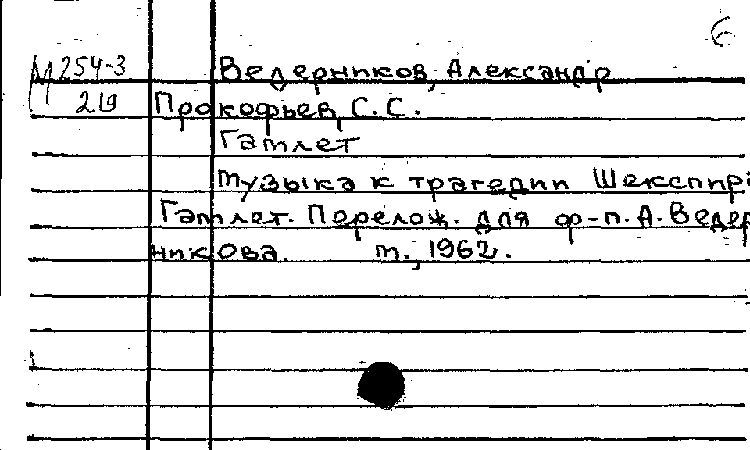 6
М 254-3 Ведерников, Александр
219 Прокофьев, С. С.
Гамлет
Музыка к трагедии Шекспира
Гамлет. Перелож. для ф-п. А. Ведер
никова. М., 1962.